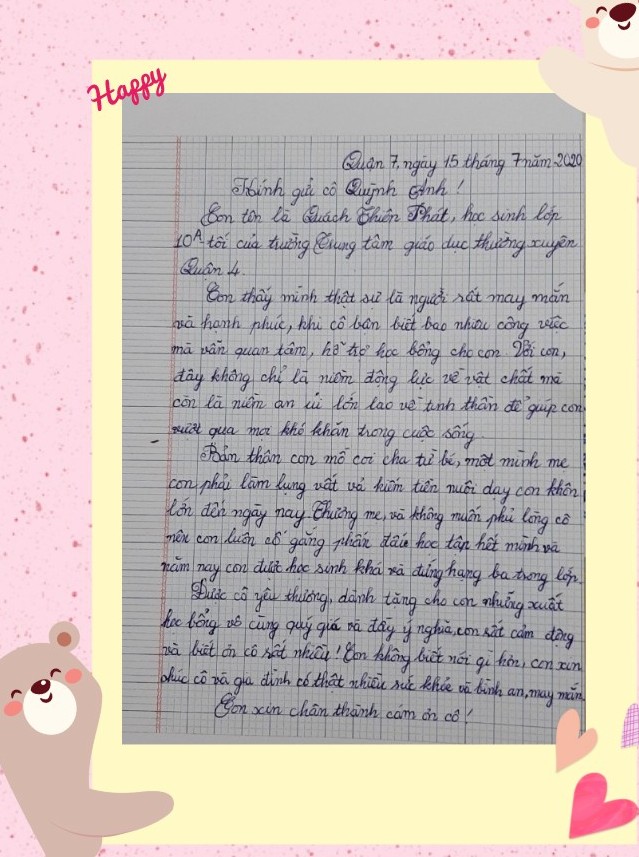 Happy
Quận 7, ngày 15 tháng 7 năm 2020
Kính gửi cô Quỳnh Anh!
Con tên là Quách Thiên Phát, học sinh lớp
10A tối của trường Trung tâm giáo dục thường xuyên
Quận 4.
Con thấy mình thật sự là người rất may mắn
và hạnh phúc, khi cô bận biết bao nhiêu công việc
mà vẫn quan tâm, hỗ trợ học bổng cho con. Với con,
đây không chỉ là niềm động lực về vật chất mà
còn là niềm an ủi lớn lao về tinh thần để giúp con
vượt qua mọi khó khăn trong cuộc sống.
Bản thân con mồ côi cha từ bé, một mình mẹ
con phải làm lụng vất vả kiếm tiền nuôi dạy con khôn
lớn đến ngày nay. Thương mẹ, và không muốn phụ lòng cô
nên con luôn cố gắng phấn đấu học tập hết mình và
năm nay con được học sinh khá và đứng hạng ba trong lớp.
Được cô yêu thương, dành tặng cho con những xuất
học bổng vô cùng quý giá và đầy ý nghĩa, con rất cảm động
và biết ơn cô rất nhiều! Con không biết nói gì hơn, con xin
chúc cô và gia đình có thật nhiều sức khỏe và bình an, may mắn.
Con xin chân thành cám ơn cô!